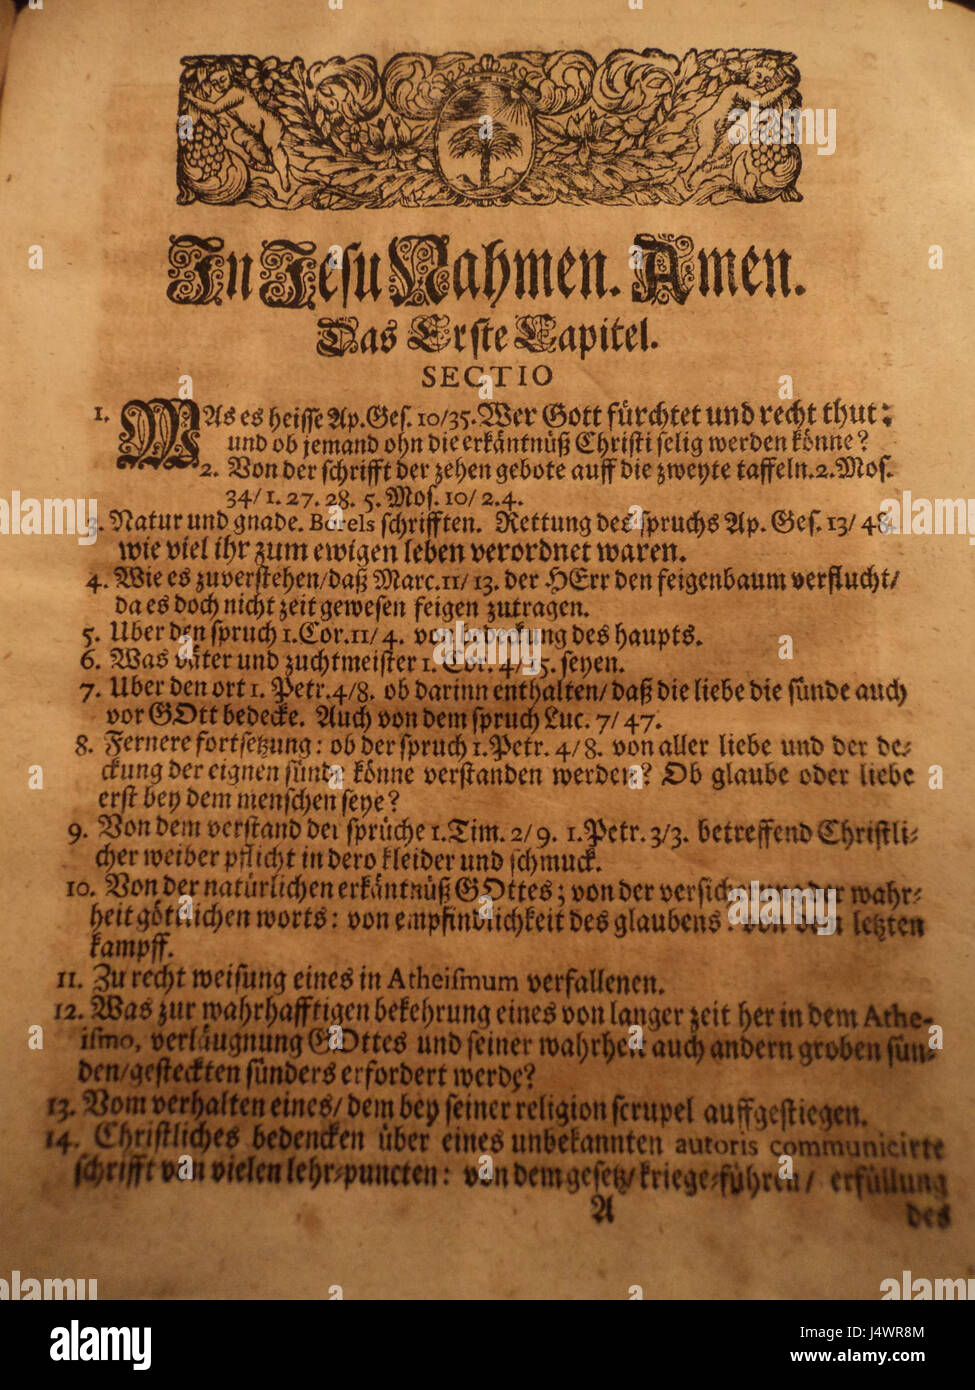 In Jesu Nahmen. Amen.
Das Erste Capitel.
SECTIO
1. WAs es heisse Ap. Ges. 10/35. Wer Gott fürchtet und recht thut:
und ob jemand ohn die erkäntnüß Christi selig werden könne?
2. Von der schrifft der zehen gebote auff die zweyte taffeln. 2. Mos.
34/1. 27. 28. 5. Mos. 10/2. 4.
3. Natur und gnade. Borels schrifften. Rettung des spruchs Ap. Ges. 13/48.
wie viel ihr zum ewigen leben verordnet waren.
4. Wie es zuverstehen/daß Marc. 11/13. der HErr den feigenbaum verflucht/
da es doch nicht zeit gewesen feigen zutragen.
5. Uber den spruch 1. Cor. 11/4. von bedeckung des haupts.
6. Was väter und zuchtmeister 1. Cor. 4/15. seyen.
7. Uber den ort 1. Petr. 4/8. ob darinn enthalten/daß die liebe die sünde auch
vor GOtt bedecke. Auch von dem spruch Luc. 7/47.
8. Fernere fortsetzung: ob der spruch 1. Petr. 4/8. von aller liebe und der be-
ckung der eignen sünde könne verstanden werden? Ob glaube oder liebe
erst bey dem menschen seye?
9. Von dem verstand der sprüche 1. Tim. 2/9. 1. Petr. 3/3. betreffend Christli-
cher weiber pflicht in dero kleider und schmuck.
10. Von der natürlichen erkäntnüß GOttes; von der versicherung der wahr-
heit göttlichen worts: von empfindlichkeit des glaubens: von dem letzten
kampff.
11. Zu recht weisung eines in Atheismum verfallenen.
12. Was zur wahrhafftigen bekehrung eines von langer zeit her in dem Athe-
ismo, verläugnung GOttes und seiner wahrheit auch andern groben sün-
den/gesteckten sünders erfordert werde?
13. Vom verhalten eines/dem bey seiner religion scrupel auffgestiegen.
14. Christliches bedencken über eines unbekannten autoris communicirte
schrifft von vielen lehr-puncten: von dem gesetz/kriege-führen/erfüllung
A des
alamy
Image ID: J4WR8M
www.alamy.com